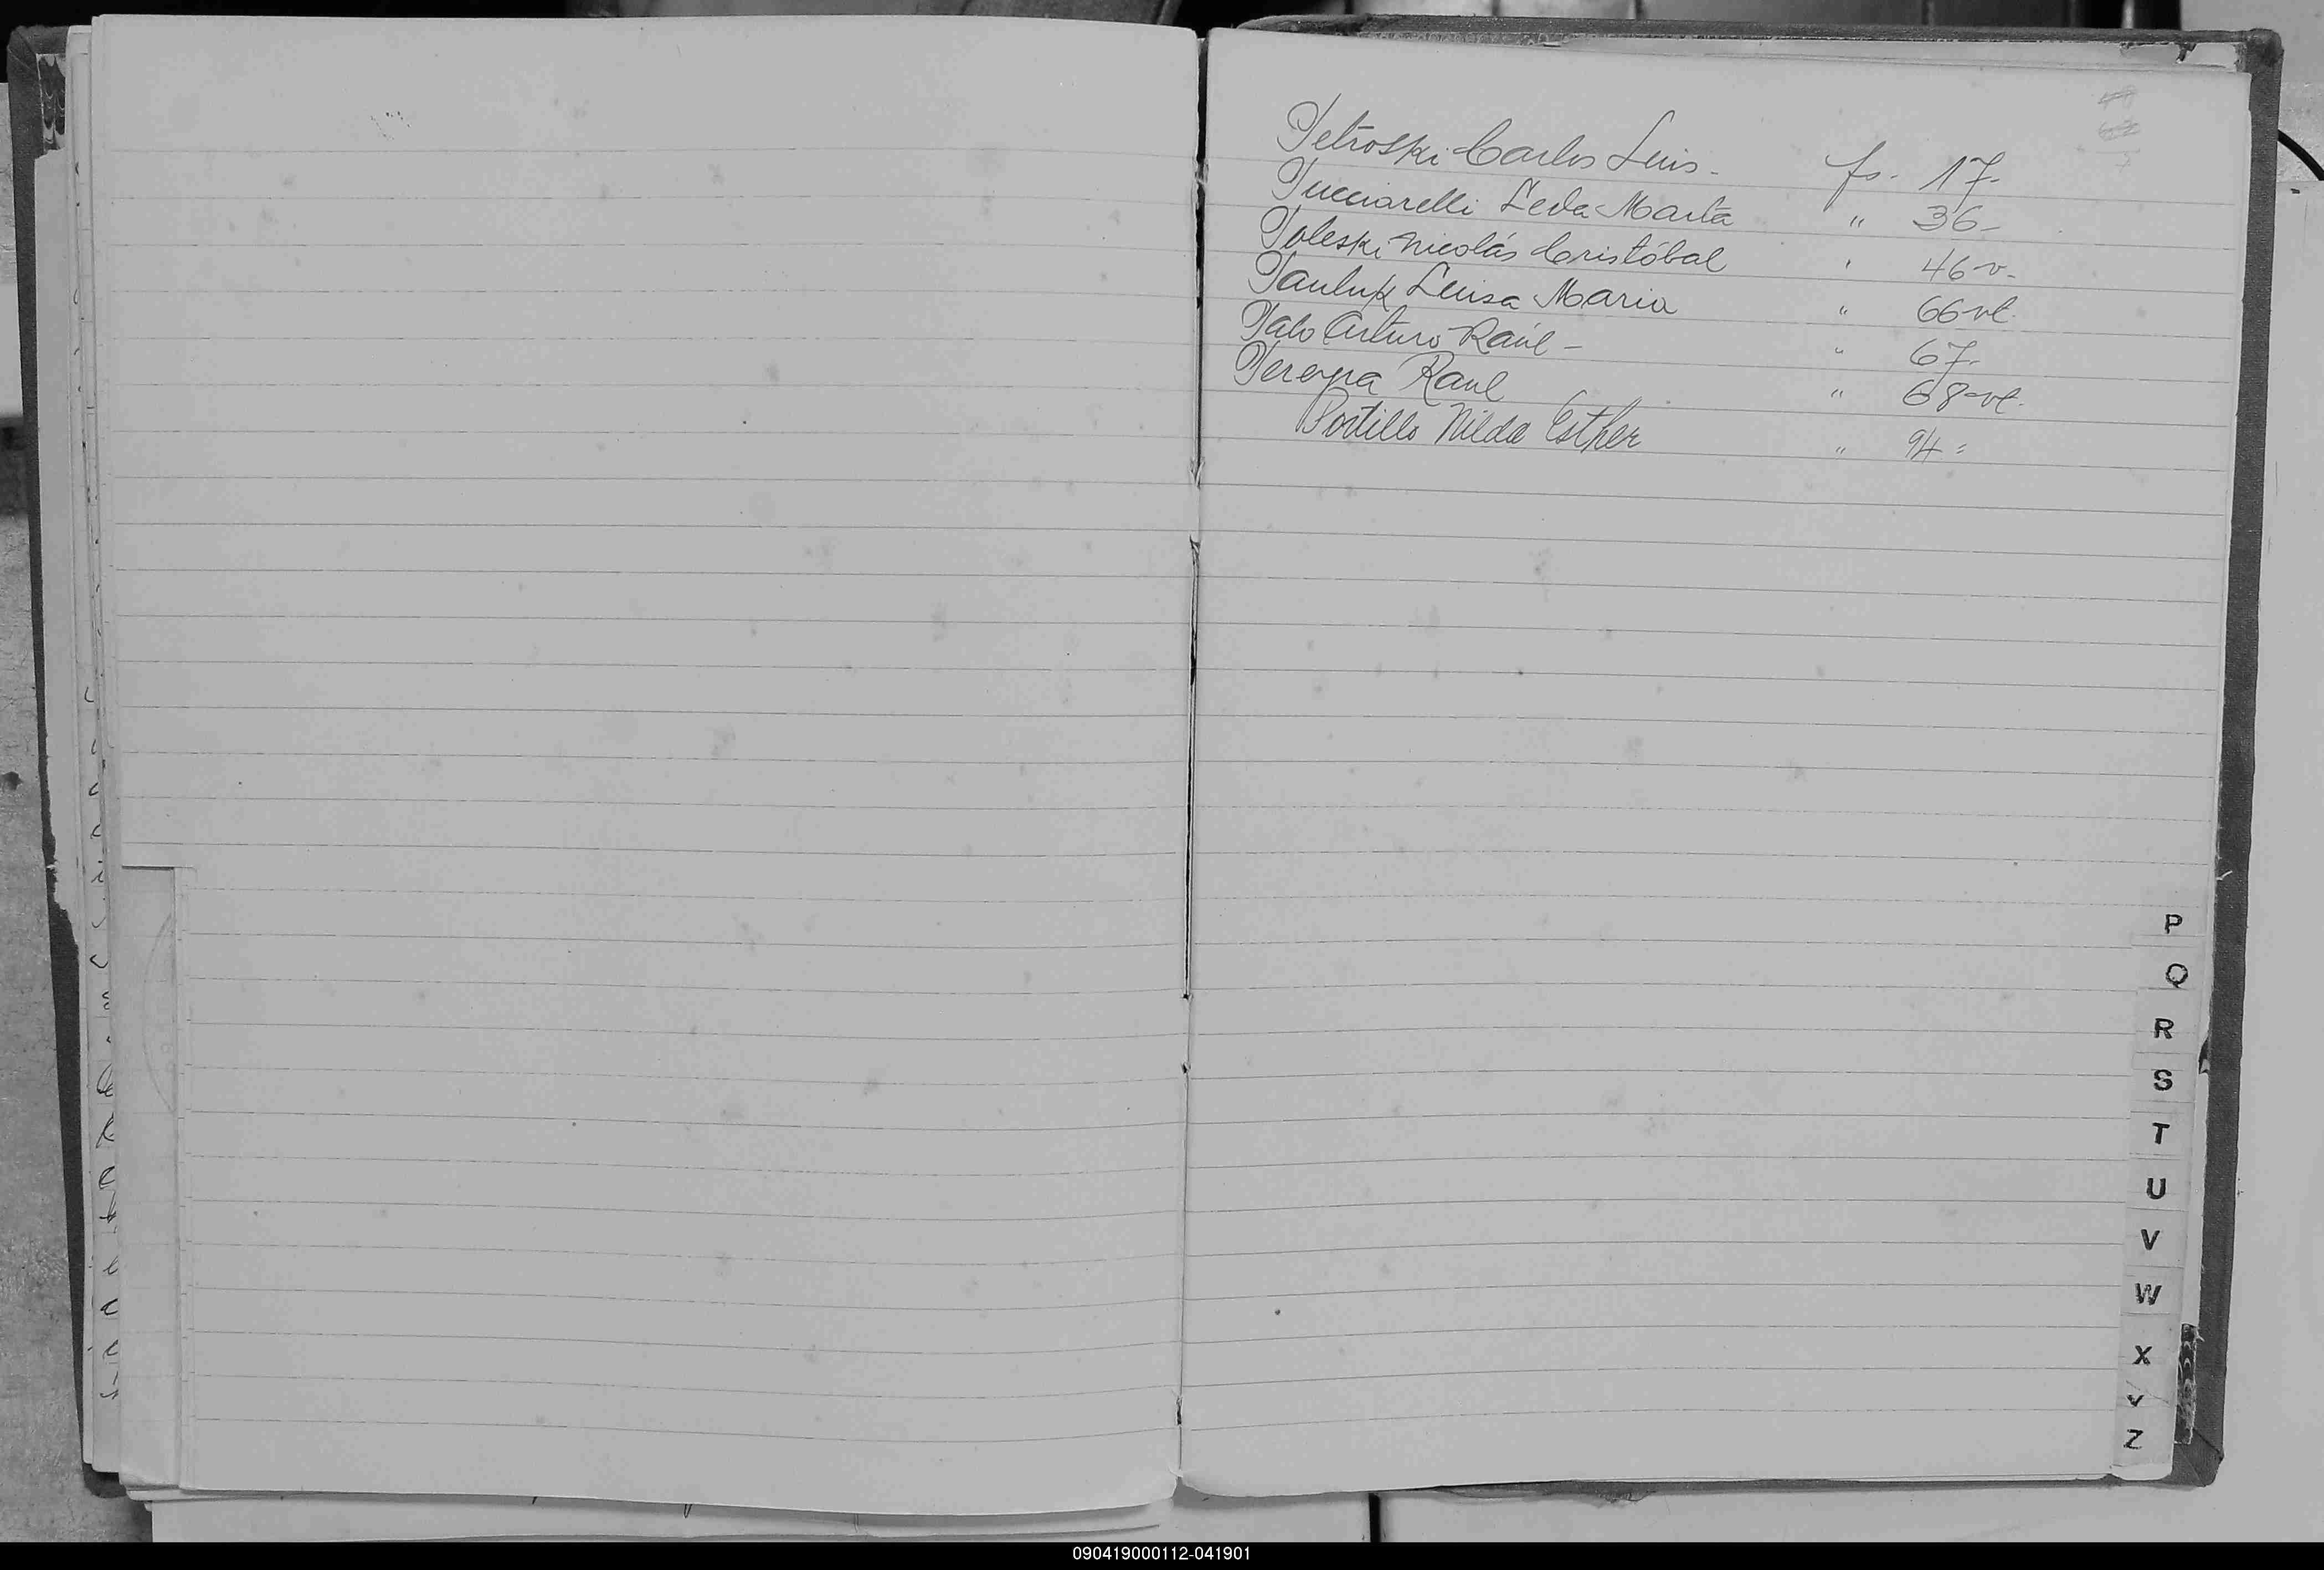 Petroski Carlos Luis - fs. 17-
Pucciarelli Leda Marta " 36-
Poleski Nicolás Cristóbal " 46 v.
Pauluk Luisa Maria " 66 vt.
Palo Arturo Raúl - " 67-
Pereyra Raul " 68 vt.
Portillo Nilda Esther " 94 =
P
Q
R
S
T
U
V
W
X
Y
Z
090419000112-041901